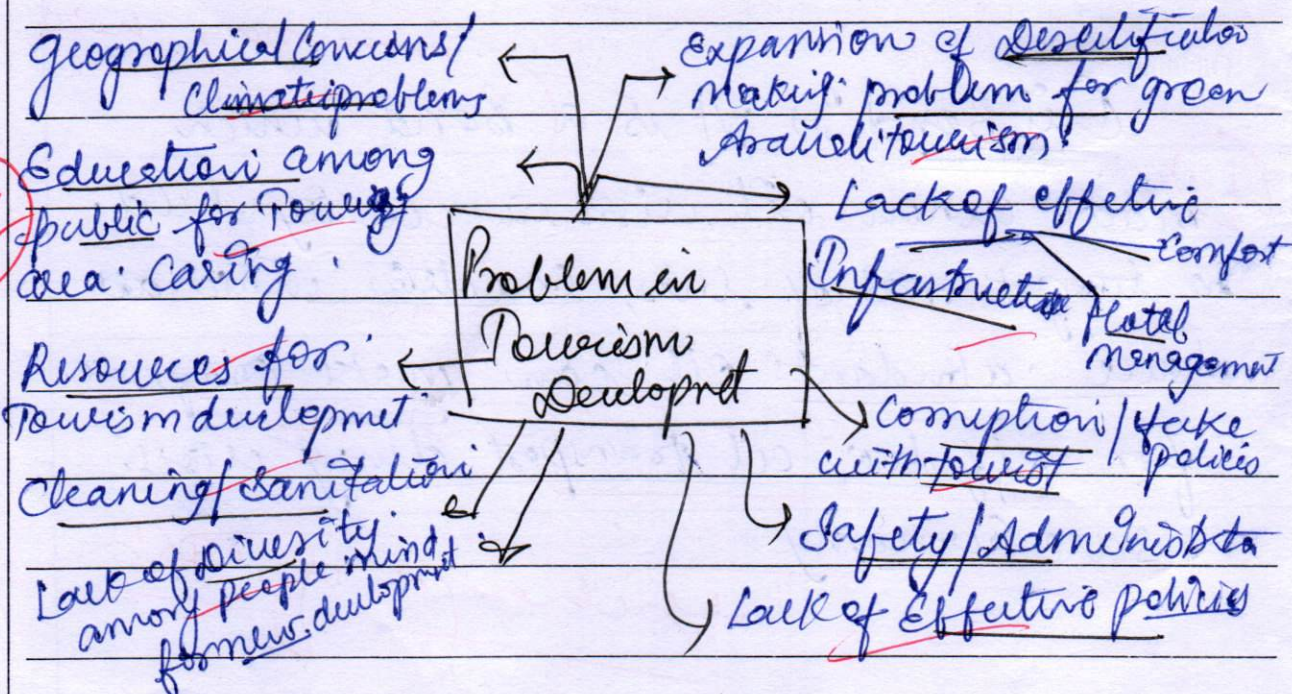 Geographical Concerns/
Climatic problems
Education among
public for Touring
area Caring.
Resources for
Tourism develpmet
Cleaning/Sanitation
Lack of Diversity
among people mind
for new development
Problem in
Tourism
Developmet
Expansion of Desertification
Making problem for green
Aravali tourism
Lack of effective
Infrastructure
Comfort
Hotel
Management
Corruption/fake
policies
with tourist
Safety/Administ
Lack of Effective policies